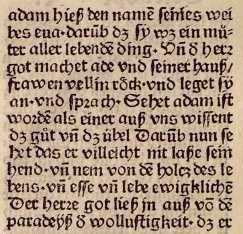 adam hieß den namē seines wei
bes eva· darūb dz sy wz ein mů
ter aller lebendē ding· Uñ d herz
got machet ade und seiner hauß/
frawen vellin rŏck· und leget sy
an· und sprach· Sehet adam ist
wordē als einer auß vns wissent
dz gůt vñ dz übel Darūb nun se
het das er villeicht nit laße sein
hend· vñ nem von dē holcz des le
bens· vñ esse vñ lebe ewigklichē
Der herze got ließ in auß vō dē
paradeyß d wollustigkeit· dz er